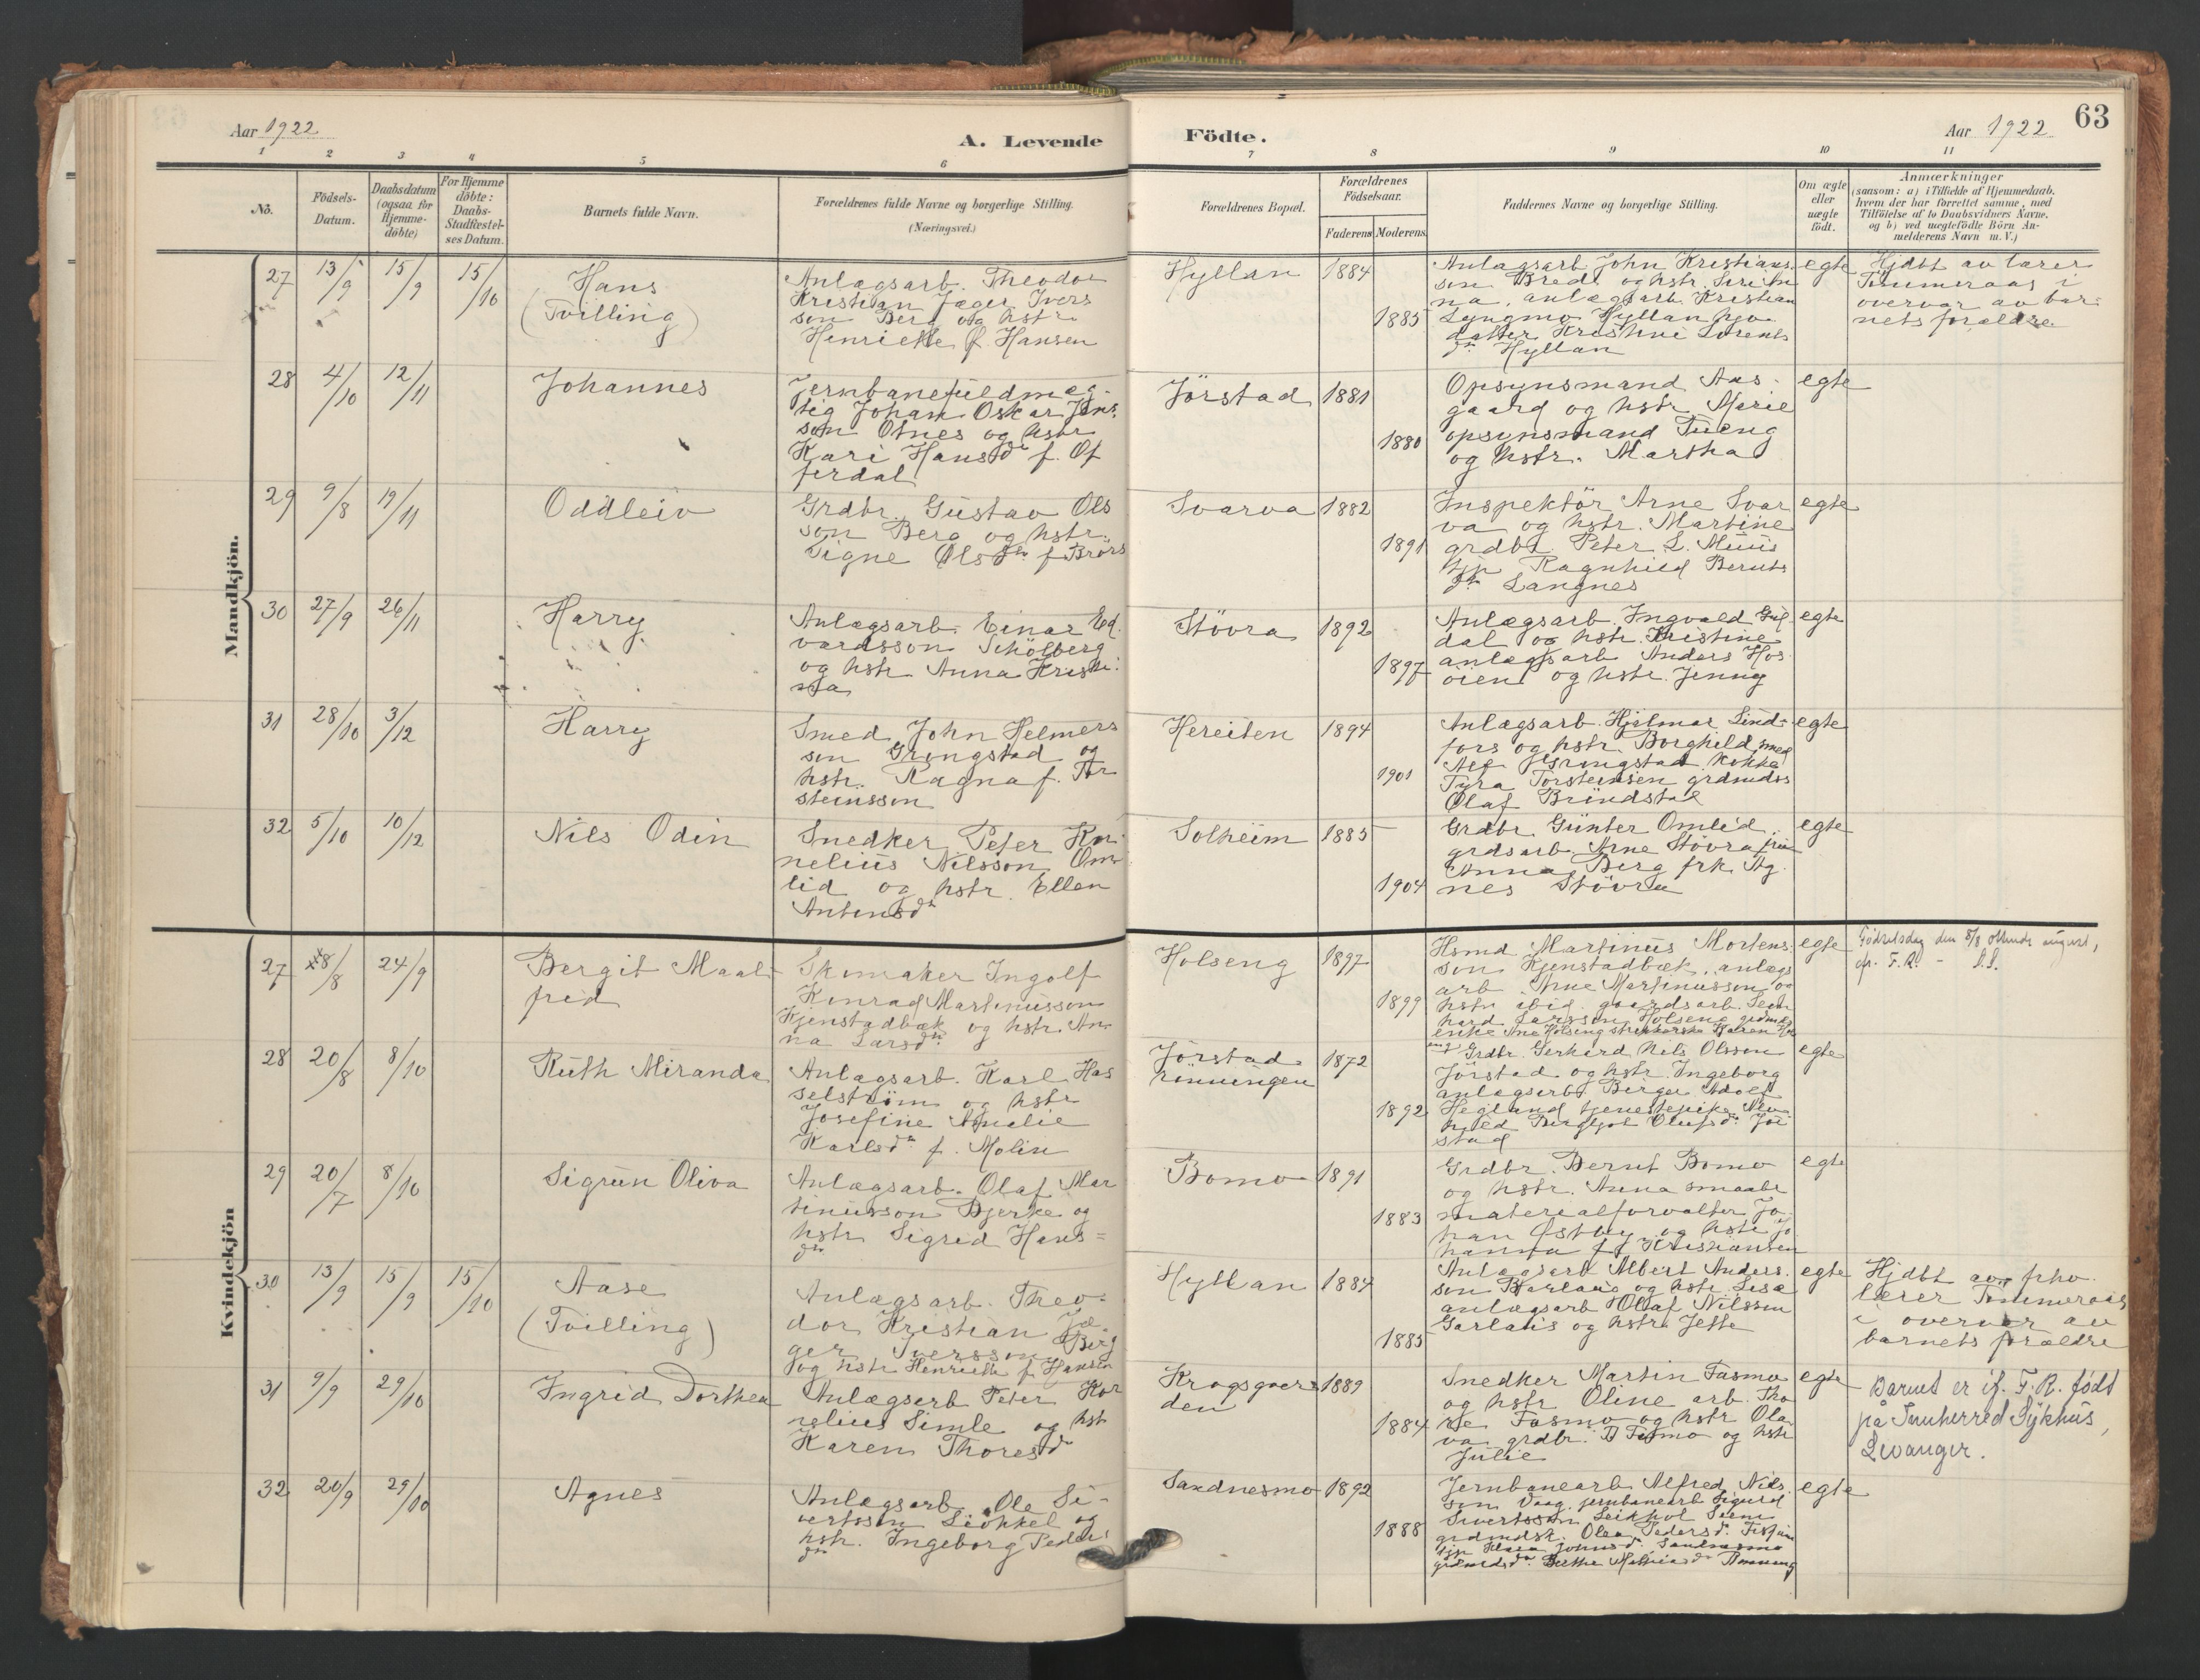 Aar 1922
A. Levende
Födte.
Aar 1922
63
1 2 3 4 5 6 7 8 9 10 11
No.
Födsels-
Datum.
Daabsdatum
(ogsaa for
Hjemme-
döbte)
For Hjemme
döbte:
Daabs-
Stadfæstel-
ses Datum.
Barnets fulde Navn.
Forældrenes fulde Navne og borgerlige Stilling.
(Næringsvei.)
Forældrenes Bopæl.
Forældrenes
Födselsaar.
Faderens
Moderens
Faddernes Navne og borgerlige Stilling.
Om ægte
eller
uægte
födt.
Anmærkninger
(saasom: a) i Tilfælde af Hjemmedaab.
hvem der har forrettet samme, med
Tilföielse af to Daabsvidners Navne.
og b) ved uægtefödte Börn An-
melderens Navn m. V.)
Mandkjön.
27 13/9 15/9 15/10
Hans
(Tvilling)
Anlægsarb. Theodor
Kristian Jæger Ivers
son Berg og hstr.
Henriette f. Hansen
Hyllan 1884
1885
Anlægsarb John Kristians
son Brede og hstr.
na, anlægsarb. Kristian
Lyngmo Hyllan
datter Kristine Lorents
dtr Hyllan
egte
Hjdbt av lærer
Tömmeraas i
overvær av bar-
nets forældre
28 4/10 12/11
Johannes
Jernbanefuldmæg-
tig Johan Oskar Jens
son Otnes og hstr
Kari Hansdtr f. Of
ferdal
Jörstad 1881
1880
Opsynsmand Aas-
gaard og hstr Marie
opsynsmand Tueng
og hstr. Martha
egte
29 9/8 19/11
Oddleiv
Grdbr. Gustav Ols
son Berg og hstr.
Signe Olsdtr f. Brörs
Svarva 1882
1891
Inspektör Arne Svar
va og hstr. Martine
grdbr. Peter L. Muus
tjp Ragnhild Bernts
dtr Langnes
egte
30 27/9 26/11
Harry
Anlægsarb. Einar Ed.
vardsson Schölberg
og hstr Anna Kristi-
na
Stövra 1892
1897
Anlægsarb. Ingvald Gul
dal og hstr. Kristine
anlægsarb Anders Hos
öien og hstr. Jenny
egte
31 28/10 3/12
Harry
Smed John Helmers
son Grongstad og
hstr. Ragna f. Tor
steinsson
Hereiten 1894
1901
Anlægsarb. Hjalmar Lind-
fors og hstr Borghild smed
Alf Grongstad kokke
Tyra Torsteinsen grdmds
Olaf Bründstad
egte
32 5/10 10/12
Nils Odin
Snedker Peter Kor-
nelius Nilsson Om
lid og hstr. Ellen
Antonsdtr
Solheim 1885
1904
Grdbr Günter Omlid
grdsarb. Arne Stövra fru
Anna Berg frk Ag
nes Stövra
egte
Kvindekjön
27 8/8 24/9
Bergit Maal-
frid
Skomaker Ingolf
Konrad Martinusson
Kjenstadbæk og hstr. An
na Larsdtr
Holseng 1897
1899
Hsmd Martinus Mortens
son Kjenstadbæk, anlægs
arb. Arne Martinusson og
hstr ibid. gaardsarb. Leon
hard Larsson Holseng grdmds
enke Ane Holseng strikkerske Karen Hols
eng
egte
Födselsdag den 8/8 ottende august,
cfr. F.R. - S.S.
28 20/8 8/10
Ruth Miranda
Anlægsarb. Karl Has
selström og hstr
Josefine Amalie
Karlsdtr f. Molin
Jörstad
rönningen
1872
1892
Grdbr. Gerhard Nils Olsson
Jörstad og hstr. Ingeborg
anlægsarb Birger Adolf
Hegland tjenestepike
hild Bergljot Olufsdtr Jör
stad
egte
29 20/7 8/10
Sigrun Oliva
Anlægsarb. Olaf Mar
tinusson Bjerke og
hstr Sigrid Hans=
dtr
Bomo 1891
1883
Grdbr. Bernt Bomo
og hstr. Anna smaabr
materialforvalter Jo
han Östby og hstr Jo
hanna f. Kristiansen
egte
30 13/9 15/9 15/10
Aase
(Tvilling)
Anlægsarb. Theo-
dor Kristian Jæ-
ger Iversson Berg
og hstr Henriette f. Hansen
Hyllan 1884
1885
Anlægsarb Albert Anders
son og hstr Lise
anlægsarb Olaf Nilsson
Garlaus og hstr. Jette
egte
Hjdbt av frhv.
lærer Tömmeraas
i overvær av
barnets forældre
31 9/9 29/10
Ingrid Dorthea
Anlægsarb Peter Kor
nelius Simle og hstr
Karen Thoresdtr
Krogsgaar
den
1889
1884
Snedker Martin Fasmo
og hstr Oline arb. Tho
re Fasmo og hstr Ola
va grdbr. Fasmo og hstr
Julie
egte
Barnet er if. F.R. födt
på Innherred Sykhus,
Levanger.
32 20/9 29/10
Agnes
Anlægsarb. Ole Si-
vertssön Lidkkel og
hstr. Ingeborg Peder
dtr
Sandnesmo 1892
1888
Jernbanearb Alfred Nils
son Vaag, jernbanearb Sigurd
Sivertsson
grdmdsk. Olea Pedersdtr
tjp Johnsdtr Sandnesmo
grdmdsdtr Berthe Mathiasdtr
egte